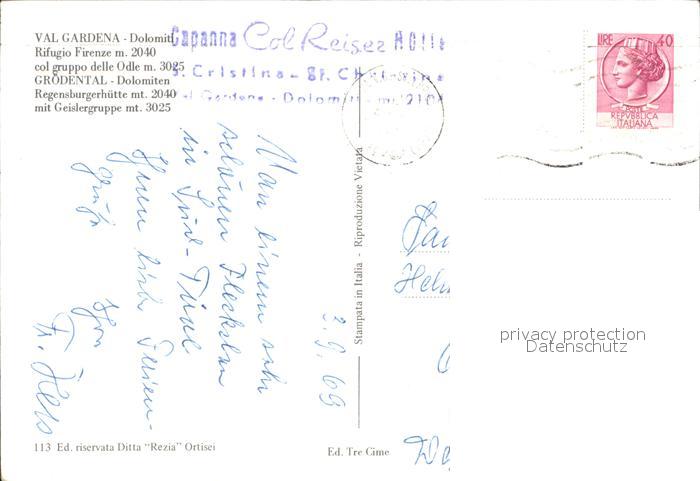 VAL GARDENA - Dolomiti
Rifugio Firenze m. 2040
col gruppo delle Odle m. 3025
GRÖDENTAL - Dolomiten
Regensburgerhütte mt. 2040
mit Geislergruppe mt. 3025
Capanna Col Raiser Hütte
S. Cristina - St. Christina
Val Gardena - Dolomiti - mt. 2104
LIRE 40
POSTE
REPVBBLICA
ITALIANA
Von einem sehr
schönen Fleckchen
in Süd-Tirol
Ihnen liebe Ferien-
grüße
Ihr
2.9.69
Stampata in Italia - Riproduzione Vietata
privacy protection
Datenschutz
113 Ed. riservata Ditta "Rezia" Ortisei
Ed. Tre Cime